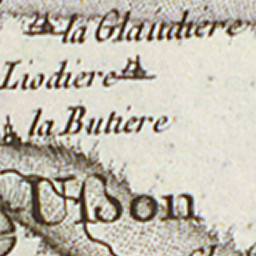 la Glaudiere
Liodiere
la Butiere
Usson